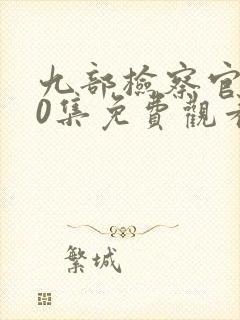 九部檢察官
0集免費觀看
繁城